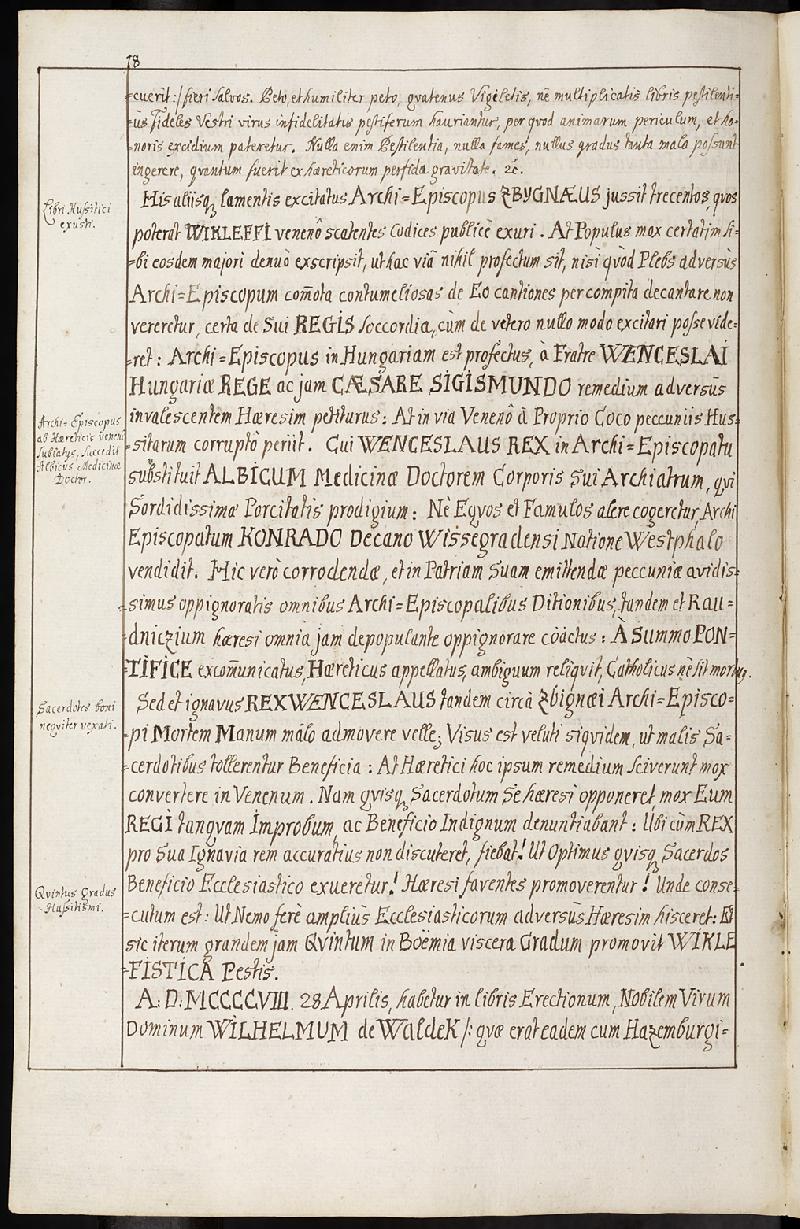 78
=cuerit:/ fieri salvos. Peto, et humiliter peto, qvatenus Vigiletis, nè multiplicatis libris pestilenti=
=us fideles Vestri virus infidelitatis pestiferum hauriantur, per qvod animarum periculum, et ho=
=noris excidium pateretur. Nulla enim Pestilentia, nulla fames, nullus gradus tanta mala possunt
ingerere, qvantum fuerit ex hæreticorum perfida gravitate. &c.
His aliisq, lamentis excitatus Archi=Episcopus ZBYGNÆUS jussit trecentos, qvos
Libri Hussitici
exusti.
poterat WIKLEFFI venenô scatentes Codices publicè exuri. At Populus mox certatim si=
=bi eosdem majori denuò exscripsit, ut hac viâ nihil profectum sit, nisi qvòd Plebs adversùs
Archi=Episcopum com̄ota contumeliosas de Eo cantiones per compita decantare non
vereretur, certa de Sui REGIS soccordia, cùm de vetero nullo modo excitari posse vide=
=ret: Archi=Episcopus in Hungariam est profectus, à Fratre WENCESLAI
Hungariæ REGE ac jam CÆSARE SIGISMUNDO remedium adversùs
invalescentem Hæresim petiturus: At in via Venenô à Proprio Coco peccuniis Hus=
Archi=Episcopus
ab Hæreticis venenô
sublatus, succedit
Albicus Medicinæ
Doctor.
=sitarum corruptô periit. Cui WENCESLAUS REX in Archi=Episcopatu
substituit ALBICUM Medicinæ Doctorem Corporis Sui Archiatrum, qvi
Sordidissimæ Parcitatis prodigium: Nè Eqvos et Famulos alere cogeretur, Archi
Episcopatum KONRADO Decano Wissegradensi Natione Westphalo
vendidit. Hic verò corrodendæ, et in Patriam Suam emittendæ peccuniæ avidis=
=simus oppignoratis omnibus Archi=Episcopalibus Ditionibus, tandem et Rau=
dniczium hæresi omnia jam depopulante oppignorare cõactus: À SUMMO PON=
=TIFICE excom̄unicatus, Hæreticus appellatus, ambiguum reliqvit, Catholicus nè sit mortuus.
Sed et ignavus REX WENCESLAUS tandem circà Zbignæi Archi=Episco=
Sacerdotes boni
neqviter vexati.
pi Mortem Manum malo admovere velle, Visus est veluti siqvidem, ut malis Sa=
=cerdotibus tollerentur Beneficia: At Hæretici hoc ipsum remedium sciverunt mox
convertere in Venenum. Nam qvisq, Sacerdotum Se hæresi opponeret, mox Eum
REGI tanqvam Improbum, ac Beneficio Indignum denuntiabant: Ubi cùm REX
pro Sua Ignavia rem accuratius non discuteret, fiebat! Ut Optimus qvisq, Sacerdos
Beneficio Ecclesiastico exueretur! Hæresi faventes promoverentur! Unde conse=
Qvintus Gradus
Hussitismi.
=cutum est: Ut Nemo ferè ampliùs Ecclesiasticorum adversùs Hæresim hisceret: Et
sic iterum grandem jam Qvintum in Boëmiæ viscera Gradum promovit WIKLE
=FISTICA Pestis.
A: D: MCCCCVIII. 28 Aprilis, habetur in libris Erectionum, Nobilem Virum
Dominum WILHELMUM de Waldek /: qvæ erat eadem cum Hazemburgi=